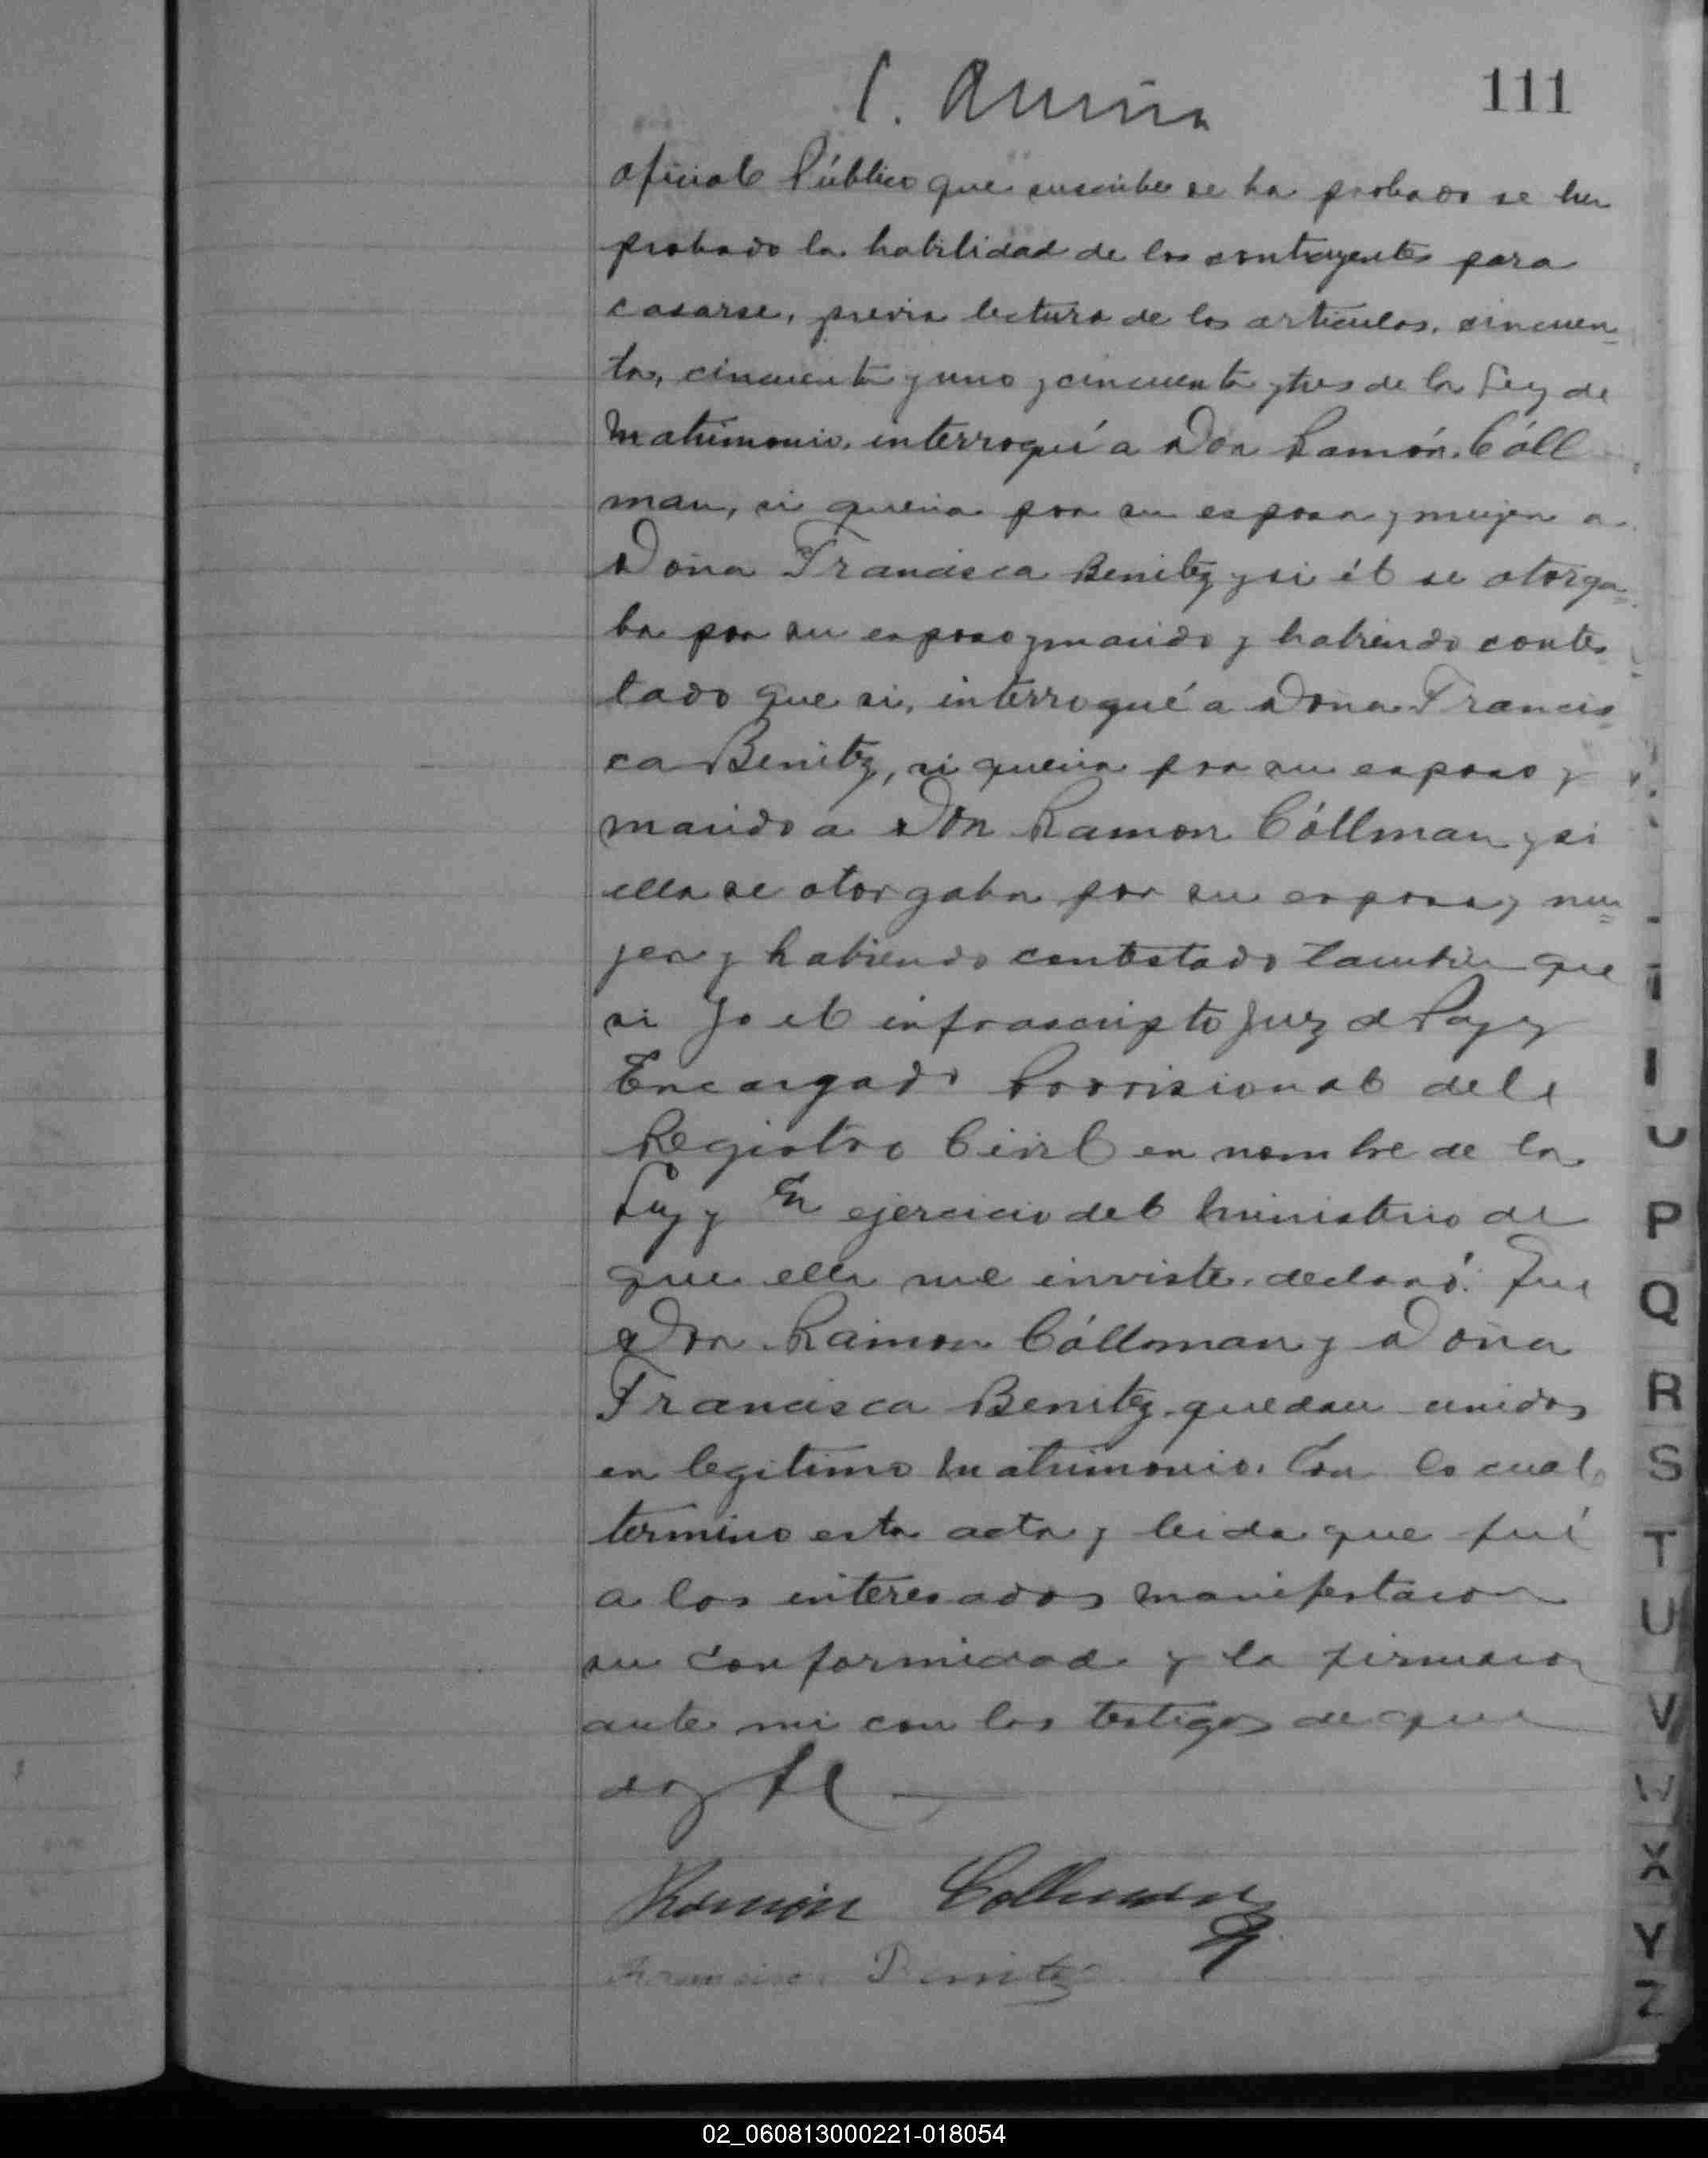 111
oficial Público que suscribe se ha probado se ha
probado la habilidad de los contrayentes para
casarse, previa lectura de los articulos, cincuen=
ta, cincuenta y uno y cincuenta y tres de la Ley de
Matrimonio, interrogué a Don Ramón Cóll
man, si queria por su esposa y mujer a
Doña Francisca Benitez y si él se otorga=
ba por su esposo y marido y habiendo contes
tado que si, interrogué a Doña Francis
ca Benitez, si queria por su esposo y
marido a Don Ramon Cóllman y si
ella se otorgaba por su esposa y mu=
jer y habiendo contestado tambien que
si Yo el infrascripto Juez de Paz y
Encargado Provisional del
Registro Civil en nombre de la
Ley y En ejercicio del Ministerio de
que ella me inviste, declaró: Que
Don Ramon Cóllman y Doña
Francisca Benitez quedan unidos
en legitimo Matrimonio. Con lo cual
termino esta acta y leida que fué
a los interesados manifestaron
su conformidad y la firmaron
ante mi con los testigos de que
doy fe
Ramón Collman
Francisca Benitez
P
Q
R
S
T
U
V
W
X
Y
Z
02_060813000221-018054